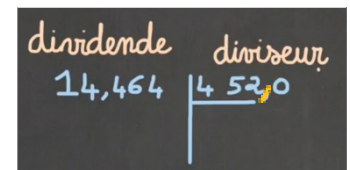 dividende diviseur
14,464 4 52,0